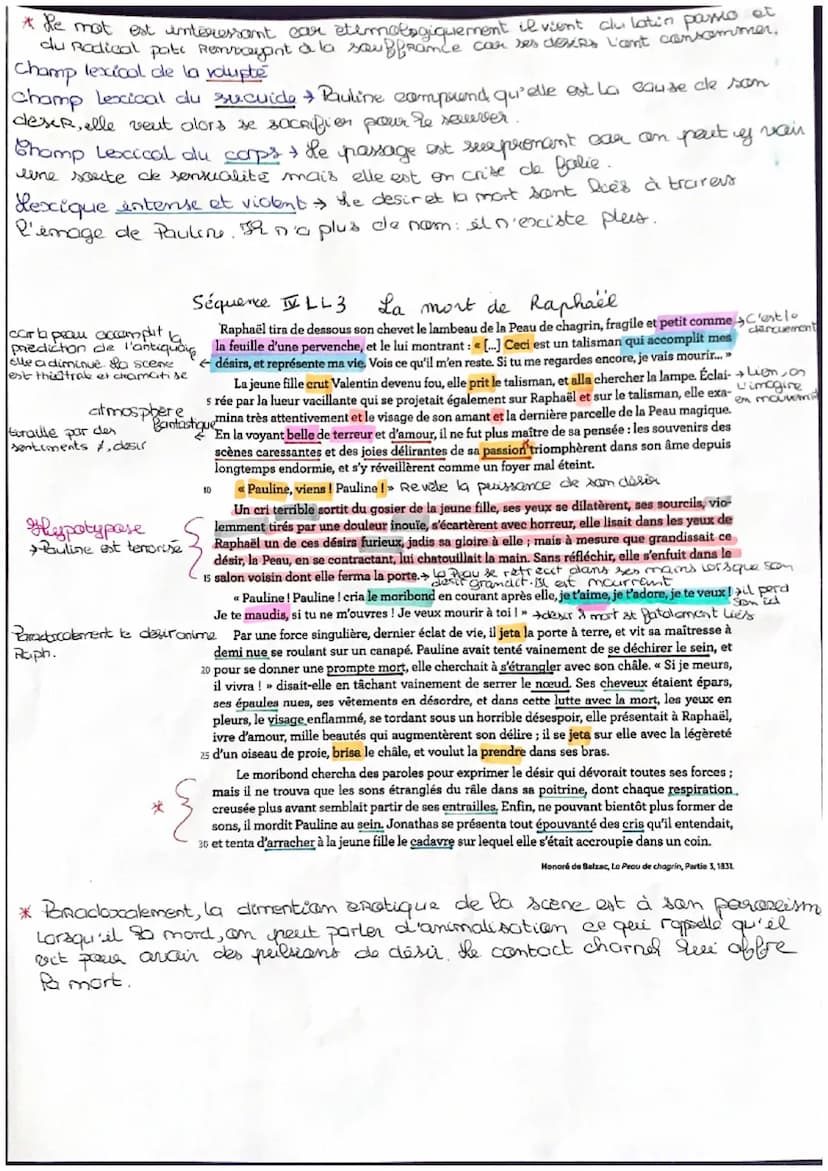 * Le mot est interessant car etimologiquement il vient du latin passio et
du Radical pati Renvoyant à la souffrance car ses désirs l'ont consommer.
Champ lexical de la volupté
Champ Lexical du suicide → Pauline comprend qu'elle est la cause de son
desir, elle veut alors se sacrifier pour le sauver.
Champ Lexical du corps → Le passage est surprenant car on peut y voir
une sorte de sensualité mais elle est en crise de folie.
Lexique intense et violent → Le desir et la mort sont liés à travers
l'image de Pauline. Il n'a plus de nom : il n'existe plus.
Séquence IV LL3 La mort de Raphaël
Raphaël tira de dessous son chevet le lambeau de la Peau de chagrin, fragile et petit comme → C'est le
dénouement
car la peau accomplit la
prediction de l'antiquaire
elle a diminué. La scène
est théâtrale et dramatisé
la feuille d'une pervenche, et le lui montrant : « [...] Ceci est un talisman qui accomplit mes
désirs, et représente ma vie. Vois ce qu'il m'en reste. Si tu me regardes encore, je vais mourir... »
La jeune fille crut Valentin devenu fou, elle prit le talisman, et alla chercher la lampe. Éclai- → on
l'imagine
en mouvement
5 rée par la lueur vacillante qui se projetait également sur Raphaël et sur le talisman, elle exa-
atmosphère
Fantastique
mina très attentivement et le visage de son amant et la dernière parcelle de la Peau magique.
tiraillé par des
sentiments ≠, desir
En la voyant belle de terreur et d'amour, il ne fut plus maître de sa pensée : les souvenirs des
scènes caressantes et des joies délirantes de sa passion* triomphèrent dans son âme depuis
longtemps endormie, et s'y réveillèrent comme un foyer mal éteint.
10 « Pauline, viens ! Pauline ! » Revele la puissance de son désir
Un cri terrible sortit du gosier de la jeune fille, ses yeux se dilatèrent, ses sourcils, vio-
Hypotypose
→ Pauline est terrorisé
lemment tirés par une douleur inouïe, s'écartèrent avec horreur, elle lisait dans les yeux de
Raphaël un de ces désirs furieux, jadis sa gloire à elle ; mais à mesure que grandissait ce
désir, la Peau, en se contractant, lui chatouillait la main. Sans réfléchir, elle s'enfuit dans le
15 salon voisin dont elle ferma la porte. → la Peau se rétrécit dans ses mains lorsque son
désir grandit. Il est mourrent
« Pauline ! Pauline ! cria le moribond en courant après elle, je t'aime, je t'adore, je te veux ! → il perd
Je te maudis, si tu ne m'ouvres ! Je veux mourir à toi ! » → desir & mort st fatalement liés
Paradoxalement le désir anime
Raph.
Par une force singulière, dernier éclat de vie, il jeta la porte à terre, et vit sa maîtresse à
demi nue se roulant sur un canapé. Pauline avait tenté vainement de se déchirer le sein, et
20 pour se donner une prompte mort, elle cherchait à s'étrangler avec son châle. « Si je meurs,
il vivra ! » disait-elle en tâchant vainement de serrer le nœud. Ses cheveux étaient épars,
ses épaules nues, ses vêtements en désordre, et dans cette lutte avec la mort, les yeux en
pleurs, le visage enflammé, se tordant sous un horrible désespoir, elle présentait à Raphaël,
ivre d'amour, mille beautés qui augmentèrent son délire ; il se jeta sur elle avec la légèreté
25 d'un oiseau de proie, brisa le châle, et voulut la prendre dans ses bras.
Le moribond chercha des paroles pour exprimer le désir qui dévorait toutes ses forces ;
* mais il ne trouva que les sons étranglés du râle dans sa poitrine, dont chaque respiration
creusée plus avant semblait partir de ses entrailles. Enfin, ne pouvant bientôt plus former de
sons, il mordit Pauline au sein. Jonathas se présenta tout épouvanté des cris qu'il entendait,
30 et tenta d'arracher à la jeune fille le cadavre sur lequel elle s'était accroupie dans un coin.
Honoré de Balzac, La Peau de chagrin, Partie 3, 1831.
* Paradoxalement, la dimention erotique de la scène est à son paroxism
Lorsqu'il la mord, on peut parler d'animalisation ce qui rappelle qu'il
vit pour avoir des pulsions de désir. Le contact charnel lui offre
la mort.